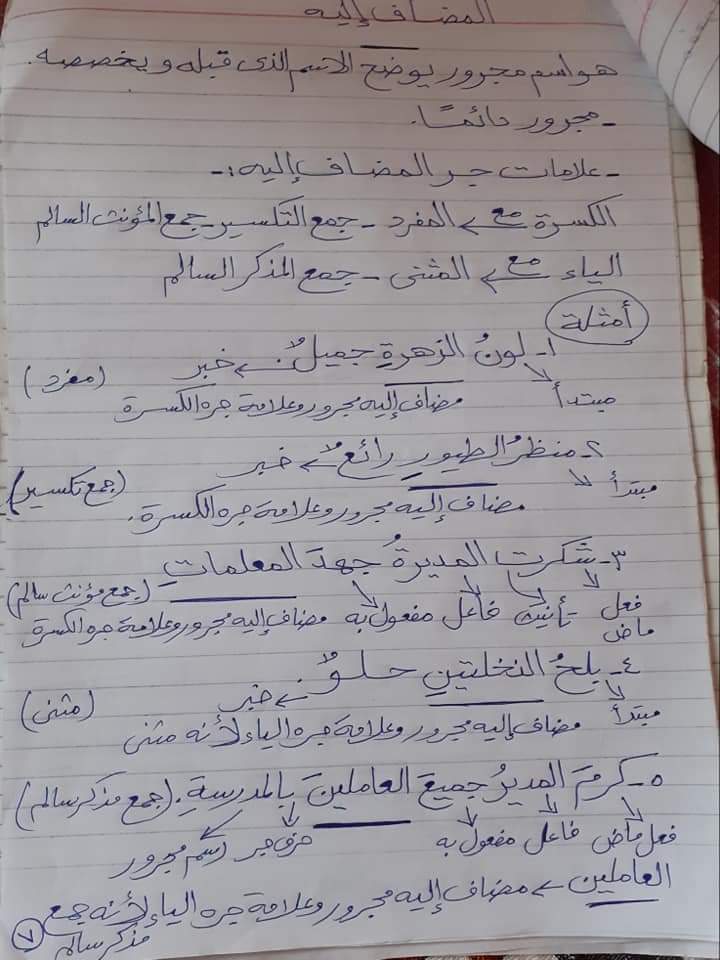 المضاف إليه
هو اسم مجرور يوضح الاسم الذى قبله ويخصصه.
- مجرور دائمًا.
- علامات جر المضاف إليه :-
الكسرة مع ← المفرد - جمع التكسير - جمع المؤنث السالم
الياء مع ← المثنى - جمع المذكر السالم
أمثلة
١- لونُ الزهرةِ جميلٌ ← خبر (مفرد)
مبتدأ مضاف إليه مجرور وعلامة جره الكسرة
٢- منظرُ الطيورِ رائعٌ ← خبر (جمع تكسير)
مبتدأ مضاف إليه مجرور وعلامة جره الكسرة.
٣- شكرت المديرةُ جهدَ المعلماتِ (جمع مؤنث سالم)
فعل ماض تأنيث فاعل مفعول به مضاف إليه مجرور وعلامة جره الكسرة
٤- بلحُ النخلتينِ حلوٌ ← خبر (مثنى)
مبتدأ مضاف إليه مجرور وعلامة جره الياء لأنه مثنى
٥- كرمَ المديرُ جميعَ العاملينَ بالمدرسةِ. (جمع مذكر سالم)
فعل ماض فاعل مفعول به حرف جر اسم مجرور
العاملين ← مضاف إليه مجرور وعلامة جره الياء لأنه جمع
مذكر سالم
٧